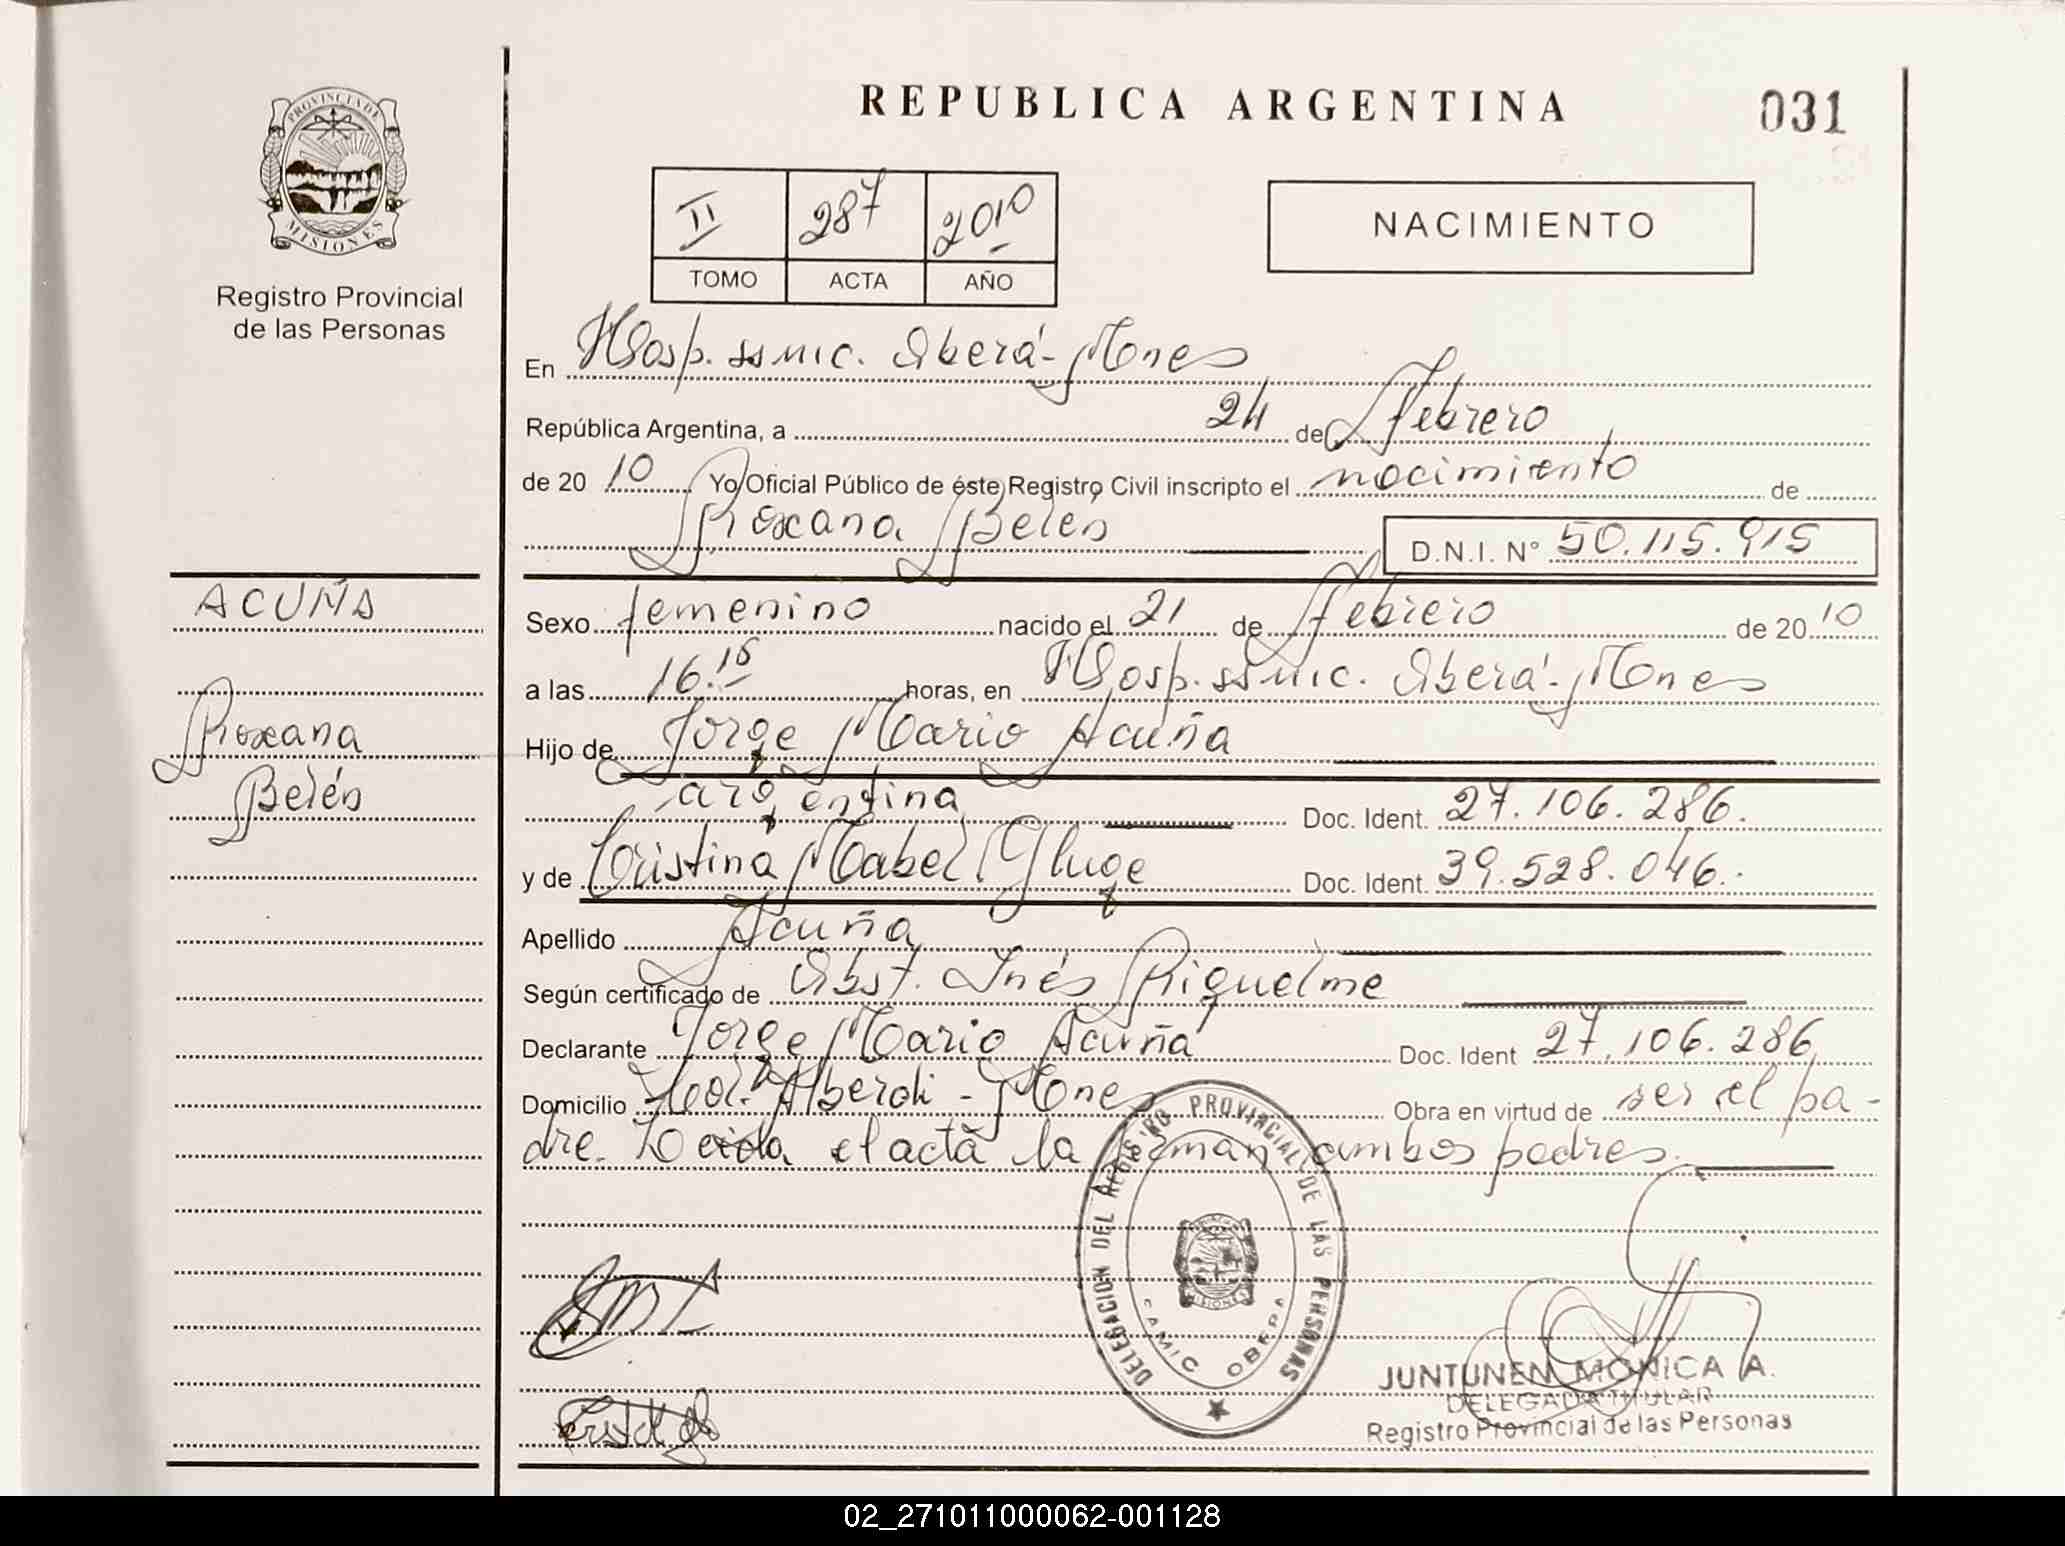 PROVINCIA DE
MISIONES
Registro Provincial
de las Personas
ACUÑA
Roxana
Belén
REPUBLICA ARGENTINA
031
II 287 2010
TOMO ACTA AÑO
NACIMIENTO
En Hosp. ss mic. Oberá - Mnes
República Argentina, a 24 de febrero
de 20 10 Yo Oficial Público de éste Registro Civil inscripto el nacimiento de
Roxana Belén D.N.I. N° 50.115.915
Sexo femenino nacido el 21 de febrero de 20 10
a las 16.15 horas, en Hosp. ss mic. Oberá - Mnes
Hijo de Jorge Mario Acuña
argentina Doc. Ident. 27.106.286.
y de Cristina Mabel Gluge Doc. Ident. 39.528.046.
Apellido Acuña
Según certificado de Obst. Inés Riquelme
Declarante Jorge Mario Acuña Doc. Ident 27.106.286
Domicilio Alberdi - Mnes Obra en virtud de ser el pa-
dre. Leida el acta la firman ambos padres.
DELEGACION DEL REGISTRO PROVINCIAL DE LAS PERSONAS
CAMIC OBERA
MISIONES
JUNTUNEN MONICA A.
DELEGADA TITULAR
Registro Provincial de las Personas
02_271011000062-001128